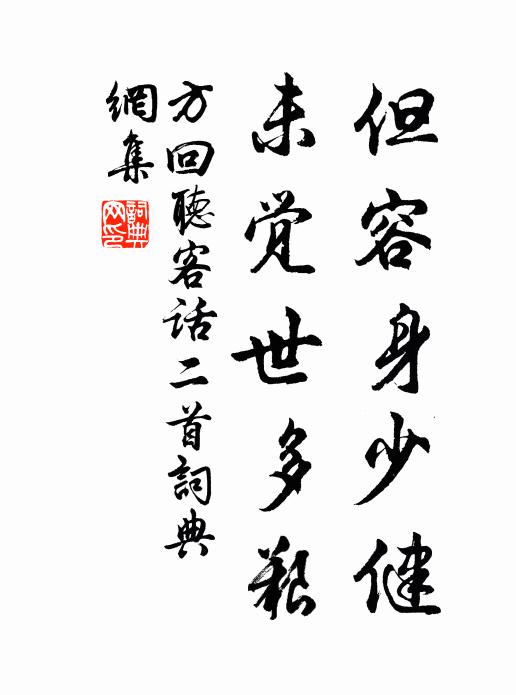 但容身少健
未觉世多艱
方回聽客話二首詞典
網集
詞典
网印